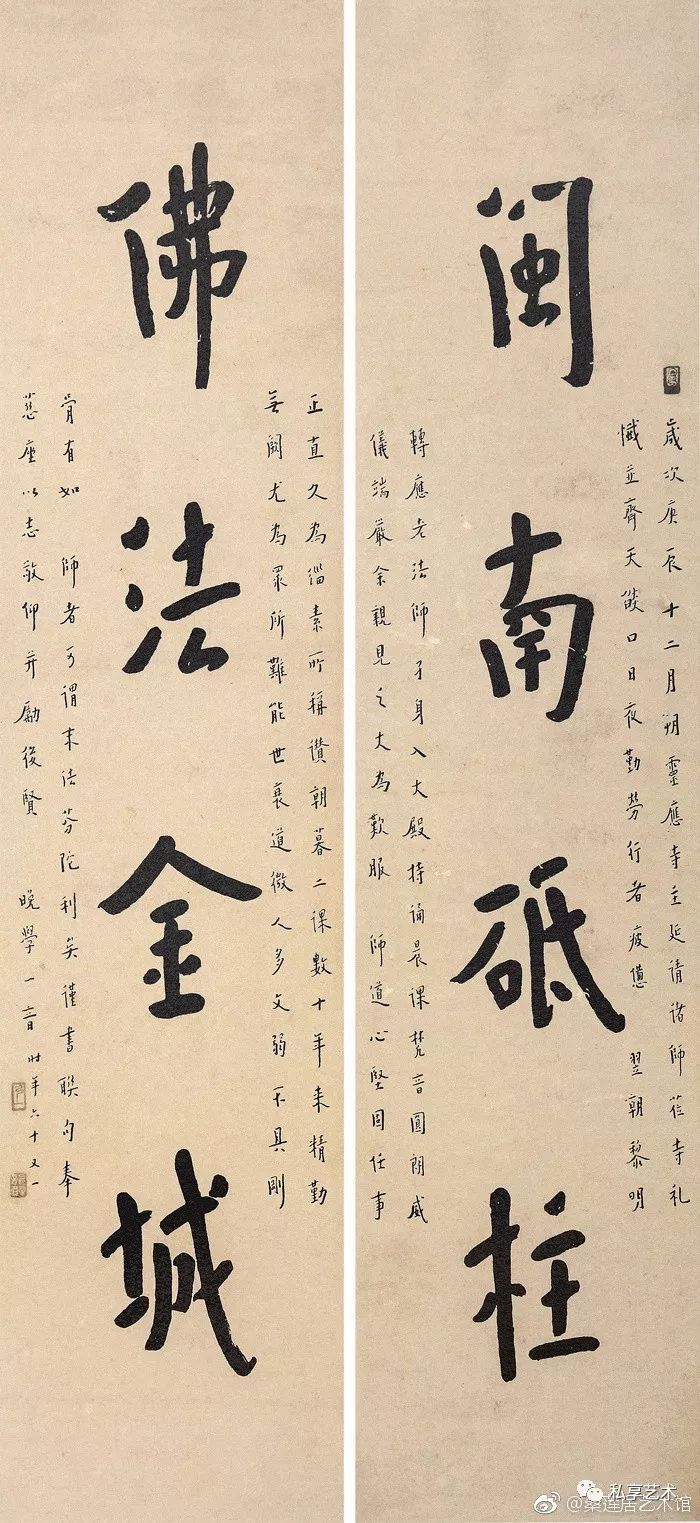 閩南砥柱
歲次庚辰十二月朔靈應寺主延請諸師蒞寺礼
懺並齋天燄口日夜勤勞行者疲憊 翌朝黎明
轉應老法師孑身入大殿持誦晨課梵音圓朗威
儀端嚴余親見之大為歎服 師道心堅固任事
佛法金城
正直久為緇素所稱讃朝暮二課數十年来精勤
无闕尤為眾所難能世衰道微人多文弱不具剛
骨有如 師者可謂末法芬陀利矣謹書聯句奉
慈座以志敬仰并勵後賢 晚學一音時年六十又一
私享艺术
@桑莲居艺术馆